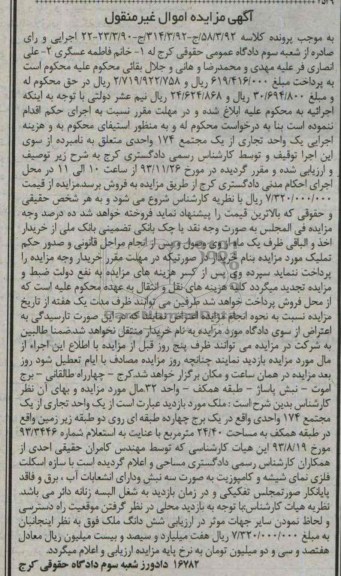 آگهی مزایده اموال غیرمنقول
به موجب پرونده کلاسه ۵۸/۳/۹۲ج-۳۱۴/۳/۹۲ج-۲۲-۲۳/۳/۹۰ اجرایی و رای
صادره از شعبه سوم دادگاه عمومی حقوقی کرج له ۱- خانم فاطمه عسگری ۲- علی
انصاری فر علیه مهدی و محمدرضا و هانی و جلال بقائی محکوم علیه محکوم است
به پرداخت مبلغ ۶۱۹/۴۱۶/۰۰۰ ریال و ۳/۷۱۹/۹۲۲/۷۵۸ ریال در حق محکوم له
و مبلغ ۳۰/۶۹۴/۸۰۰ ریال و ۲۴/۶۲۴/۸۶۸ ریال نیم عشر دولتی با توجه به اینکه
اجرائیه به محکوم علیه ابلاغ شده و در مهلت مقرر نسبت به اجرای حکم اقدام
ننموده است بنا به درخواست محکوم له و به منظور استیفای محکوم به و هزینه
اجرایی یک واحد تجاری از یک مجتمع ۱۷۴ واحدی متعلق به نامبرده از سوی
این اجرا توقیف و توسط کارشناس رسمی دادگستری کرج به شرح زیر توصیف
و ارزیابی شده و مقرر گردیده در مورخ ۹۳/۱۱/۲۶ از ساعت ۱۰ الی ۱۱ در محل
اجرای احکام مدنی دادگستری کرج از طریق مزایده به فروش برسد.مزایده از قیمت
۷/۳۲۰/۰۰۰/۰۰۰ ریال با نظریه کارشناس شروع می شود و به هر شخص حقیقی
و حقوقی که بالاترین قیمت را پیشنهاد نماید فروخته خواهد شد ده درصد وجه
مزایده فی المجلس به صورت وجه نقد یا چک بانکی تضمینی بانک ملی از خریدار
اخذ و الباقی ظرف یک ماه از وی وصول و پس از انجام مراحل قانونی و صدور حکم
تملیک مورد مزایده بنام خریدار در صورتیکه در مهلت مقرر خریدار وجه مزایده را
پرداخت ننماید سپرده وی پس از کسر هزینه های مزایده به نفع دولت ضبط و
مزایده تجدید میگردد کلیه هزینه های نقل و انتقال به عهده محکوم علیه است که
از محل فروش پرداخت خواهد شد طرفین می توانند ظرف مدت یک هفته از تاریخ
مزایده نسبت به نحوه انجام مزایده اعتراض نمایند که در این صورت تارسیدگی به
اعتراض از سوی دادگاه مورد مزایده به نام خریدار منتقل نخواهد شد.ضمنا طالبین
به شرکت در مزایده می توانند ظرف پنج روز قبل از مزایده با اطلاع این اجراء از
مال مورد مزایده بازدید نمایند چنانچه روز مزایده مصادف با ایام تعطیل شود روز
بعد مزایده در همان ساعت و مکان برگزار خواهد شد.کرج - چهارراه طالقانی - برج
آموت - نبش پاساژ - طبقه همکف - واحد ۳۲مال مورد مزایده و بهای آن نظر
کارشناس بدین شرح است : ملک مورد بازدید عبارت است از یک واحد تجاری از یک
مجتمع ۱۷۴ واحدی واقع در یک برج چهارده طبقه ای روی دو طبقه زیر زمین واقع
در طبقه همکف به مساحت ۲۴/۴۰ مترمربع با عنایت به استعلام شماره ۹۳/۳۴۴۶
مورخ ۹۳/۸/۱۹ این هیات کارشناسی که توسط مهندس کامران حقیقی احدی از
همکاران کارشناس رسمی دادگستری مساحی و اعلام گردیده است با سازه اسکلت
فلزی نمای شیشه و کامپوزیت به صورت سه نیش ودارای انشعابات آب ، برق و فاقد
پایانکار صورتمجلس تفکیکی و در زمان بازدید به شغل البسه زنانه دائر می باشد.
نظریه هیات کارشناس:با توجه به بازدید محلی در نظر گرفتن موقعیت راه دسترسی
و لحاظ نمودن سایر جهات موثر در ارزیابی شش دانگ ملک فوق به نظر اینجانبان
به مبلغ ۷/۳۲۰/۰۰۰/۰۰۰ ریال هفت میلیارد و سیصد و بیست میلیون ریال معادل
هفتصد و سی و دو میلیون تومان به نرخ پایه مزایده ارزیابی و اعلام میگردد.
۱۶۷۸۲ دادورز شعبه سوم دادگاه حقوقی کرج